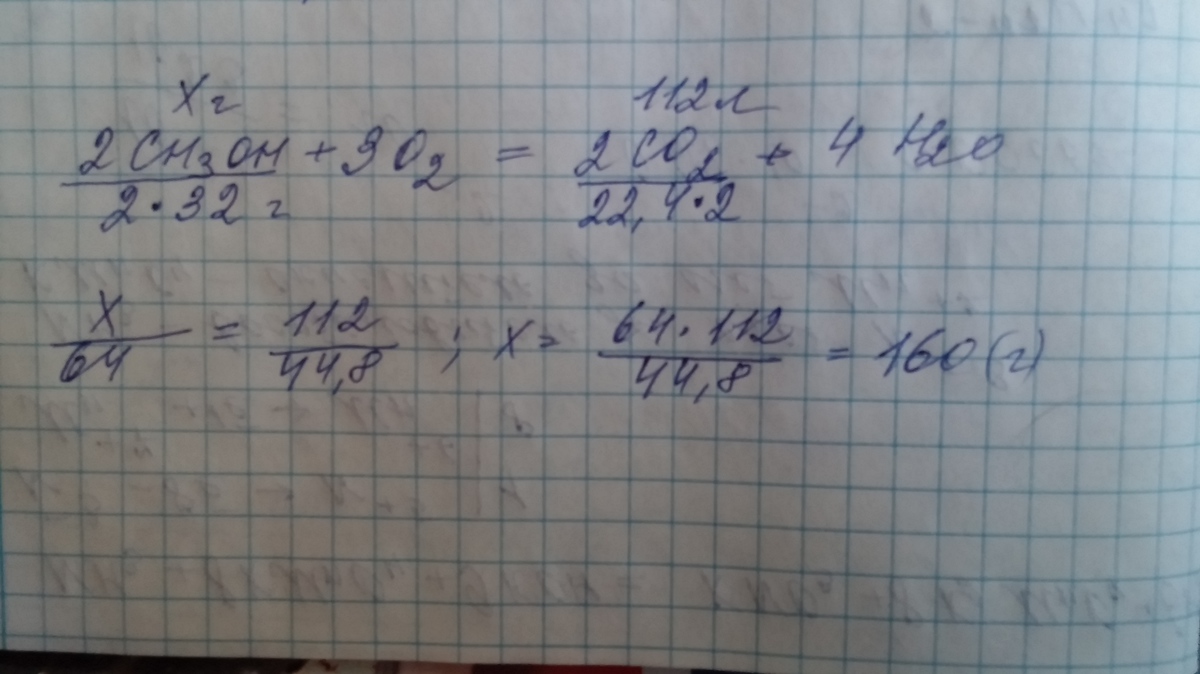 Xг 112л
2CH₃OH + 3O₂ = 2CO₂ + 4H₂O
2·32г 22,4·2
X/64 = 112/44,8 ; x = 64·112/44,8 = 160(г)